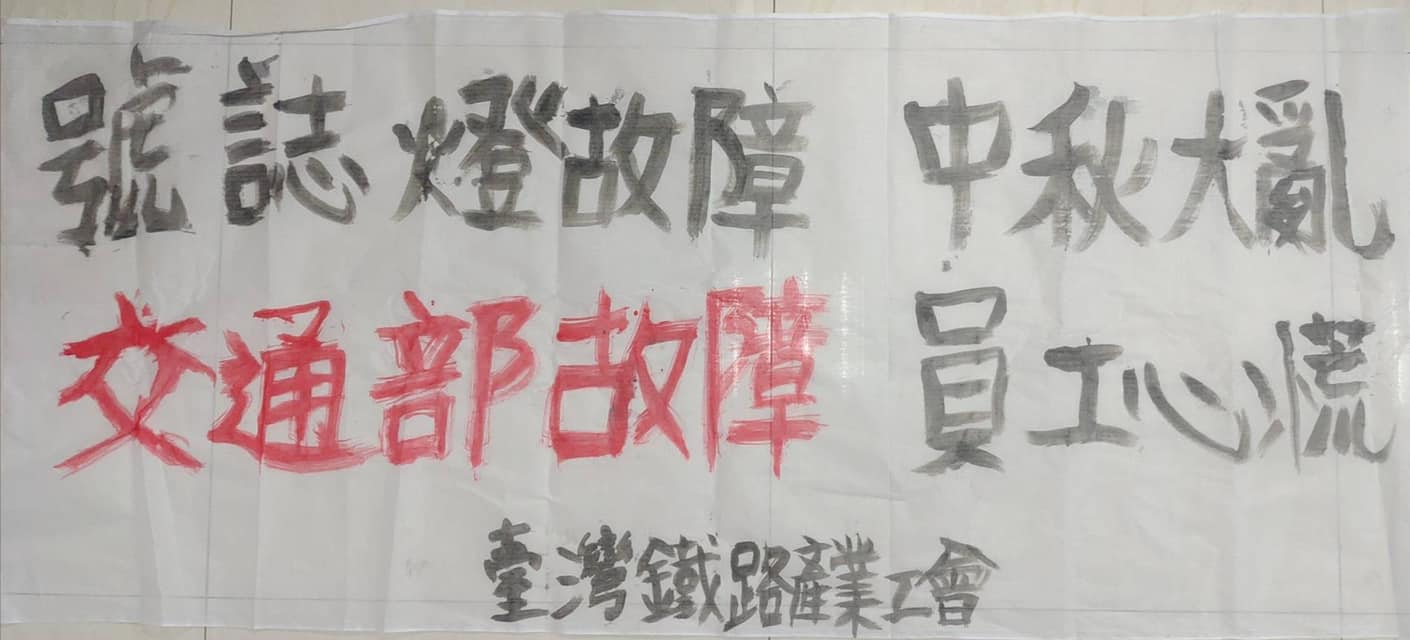 號誌燈故障 中秋大亂
交通部故障 員工心慌
臺灣鐵路產業工會